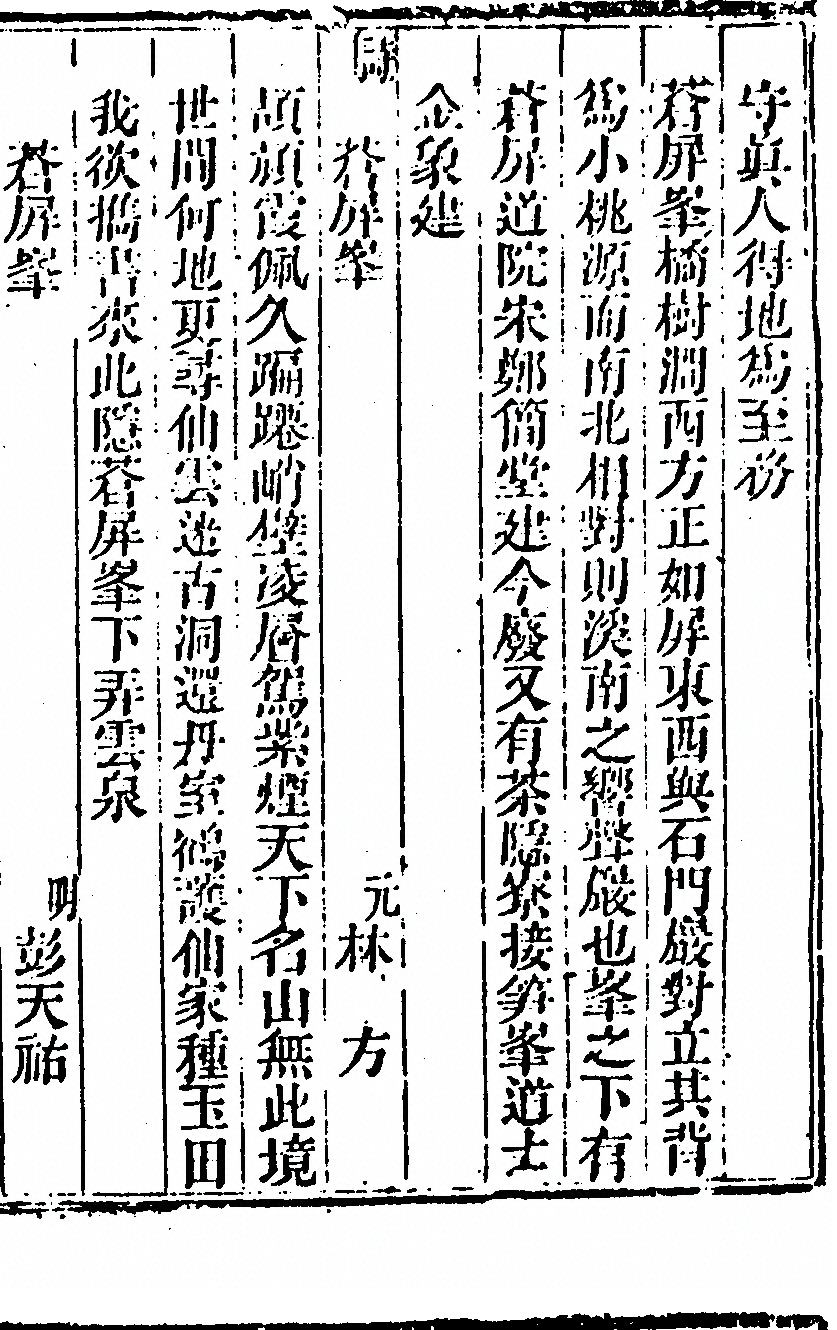 守真人得地為至彷
蒼屏峯橋樹澗西方正如屏東西與石門巖對立其背
為小桃源而南北相對則溪南之響聲巖也峯之下有
蒼屏道院宋鄭簡堂建今廢又有茶隱寮接筍峯道士
金象建
詩
蒼屏峯
元林 方
頡頏霞佩久蹁躚峭壁凌層駕紫煙天下名山無此境
世間何地更尋仙雲迷古洞還丹室鶴護仙家種玉田
我欲攜書來此隱蒼屏峯下弄雲泉
蒼屏峯
明彭天祐